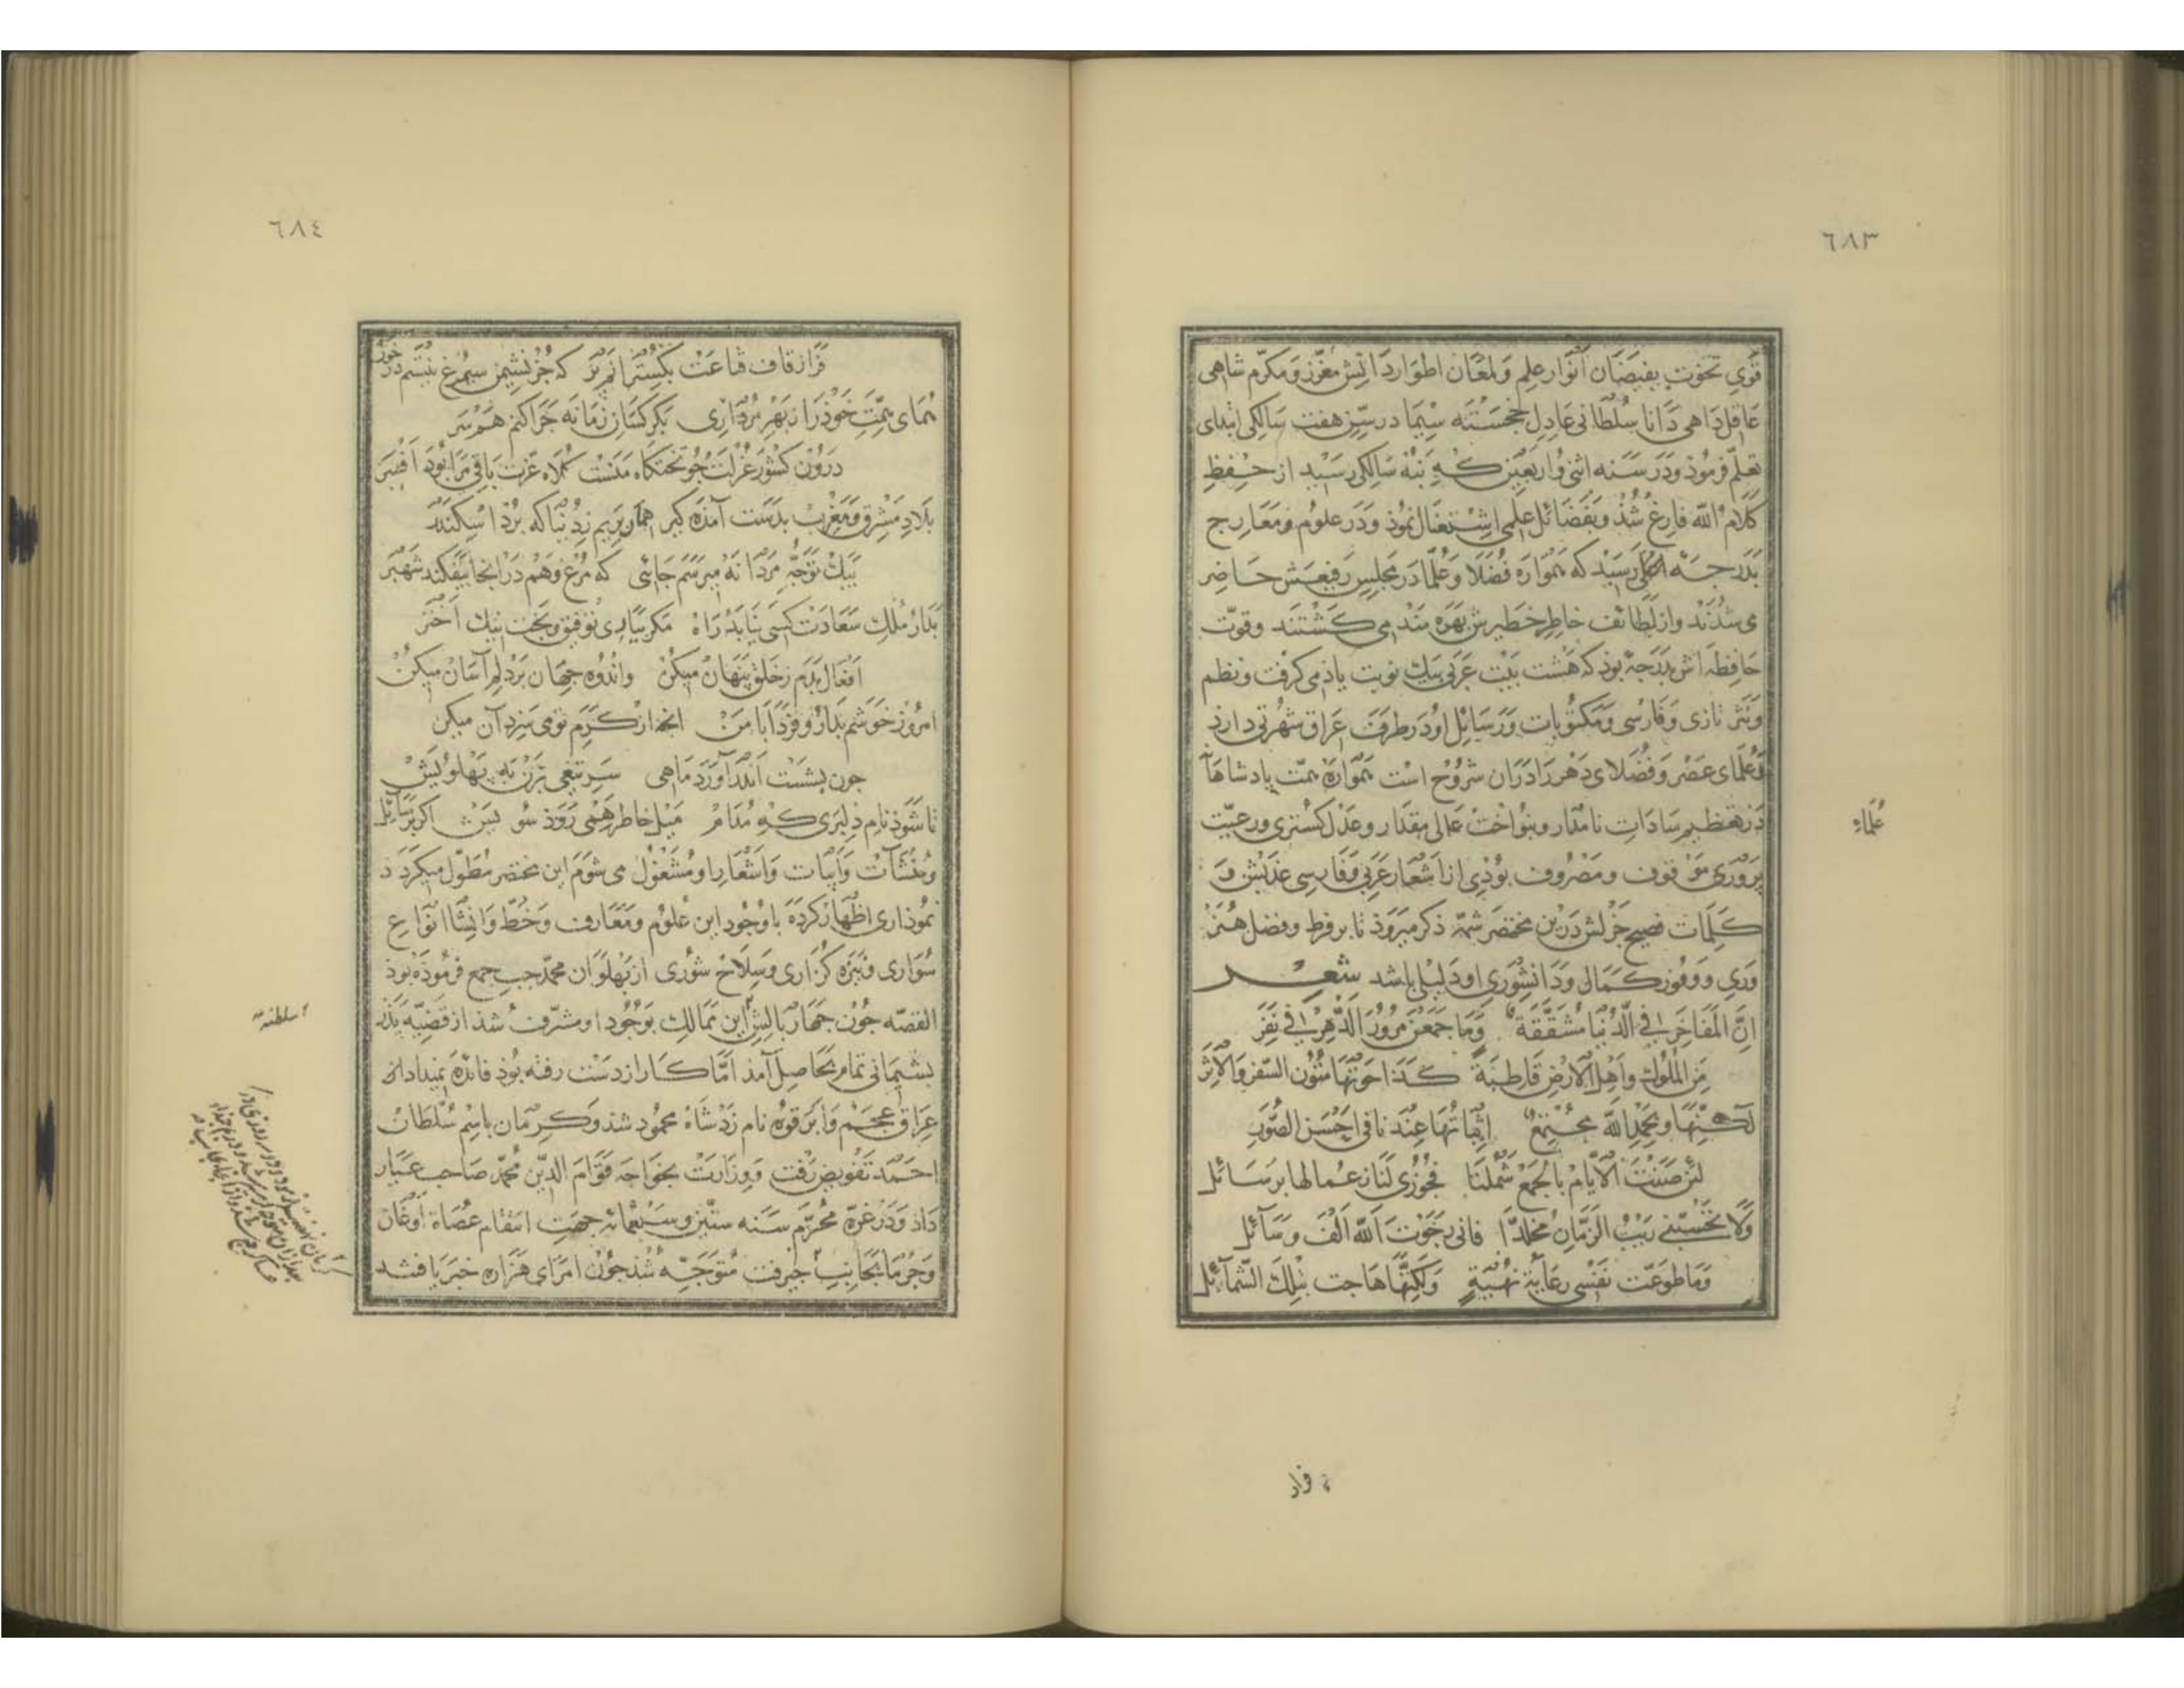 ٦٨٣
قوی تخوت بفیضان انوار علم ولمعان اطوار دانش معزز ومکرم شاهی
عاقل داهی دانا سلطانی عادل خجسته سیما در سن هفت سالکی ابتدای
تعلم فرموذ ودر سنه اثنی واربعین که بنه سالکی رسید از حفظ
کلام الله فارغ شذ وبفضائل علمی اشتغال نموذ ودر علوم ومعارج
بدرجه اعلی رسید که همواره فضلا وعلما در مجلس رفیعش حاضر
می شذند واز لطائف خاطر خطیرش بهره مند می کشتند وقوت
حافظه اش بدرجه بوذ که هشت بیت عربی بیك نوبت یاذ می کرفت ونظم
ونثر تازی وفارسی ومکتوبات ورسائل او در طرف عراق شهرتی دارذ
وعلمای عصر وفضلای دهر را دران شروح است همواره همت پادشاها
در تعظیم سادات نامدار وبنواخت عالی مقدار وعدل کستری ورعیت
علماء
پروری موقوف ومصروف بوذی از اشعار عربی وفارسی عذبش و
کلمات فصیح جزلش درین مختصر شمه ذکر میروذ تا بر فرط وفضل هنر
وری ووفور کمال ودانشوری او دلیلی باشد شعر
ان المفاخر فی الدنیا مشققة وما جمعن مرور الدهر فی نفر
من الملوك واهل الارض قاطبة کذا حوتها متون السفر والاثر
لکنها وبحمد الله مجتمع اثباتها عندنا فی احسن الصور
لئن ضنت الایام بالجمع شملنا فجوزی لنا زعما لها برسائل
ولا تحسبنی ریب الزمان مخلدا فانی رجوت الله الف وسائل
وما طوعت نفسی رعایة نهبة ولکنها هاجت بتلك الشمائل
فراز
٦٨٤
فراز قاف قناعت بکسترانم پر که جز نشیمن سیمرغ نیستم در خور
همای همت خوذ را ز بهر مرداری بکرکسان زمانه چرا کنم همسر
درون کشور عزلت جو تختکاه منست کلاه عزت باقی مرا بوذ افسر
بلاد مشرق ومغرب بدست آمذه کیر همان بریم ز دنیا که برد اسکندر
بیك توجه مردانه میرسم جائی که مرغ وهم در انجا بیفکند شهپر
بدار ملك سعادت کسی نیابد راه مکر بیاری توفیق وبخت نیك اختر
افعال بدم ز خلق پنهان میکن واندوه جهان بر دلم آسان میکن
امروز خوشم بدار وفردا با من انچه از کرم تو می سزد آن میکن
جون بشست اندر آورد ماهی سر تیغی بزن به پهلویش
تا شوذ نام دلبری که مدام میل خاطر همی روذ سویش اکر برسائل
ومنشآت وابیات واشعار او مشغول می شوم این مختصر مطول میکردذ
نموذاری اظهار کرده با وجود این علوم ومعارف وخط وانشا انواع
سواری ونیزه کزاری وسلاح شوری از پهلوان محمد جب جمع فرموذه بوذ
القصه جون جهار بالش این ممالك بوجود او مشرف شذ از قضیه پذر
اسلطنة
پشیمانی تمام بحاصل آمذ اما کار از دست رفته بوذ فائده نمیداد
عراق عجم وابرقوه نام زد شاه محمود شذ وکرمان باسم سلطان
احمد تفویض رفت ووزارت بخواجه قوام الدین محمد صاحب عیار
داذ ودر غره محرم سنه ستین وسبعمائه جهت انتقام عصاة اوغان
وجرما بجانب جیرفت متوجه شذ جون امرای هزاره خبر یافتند